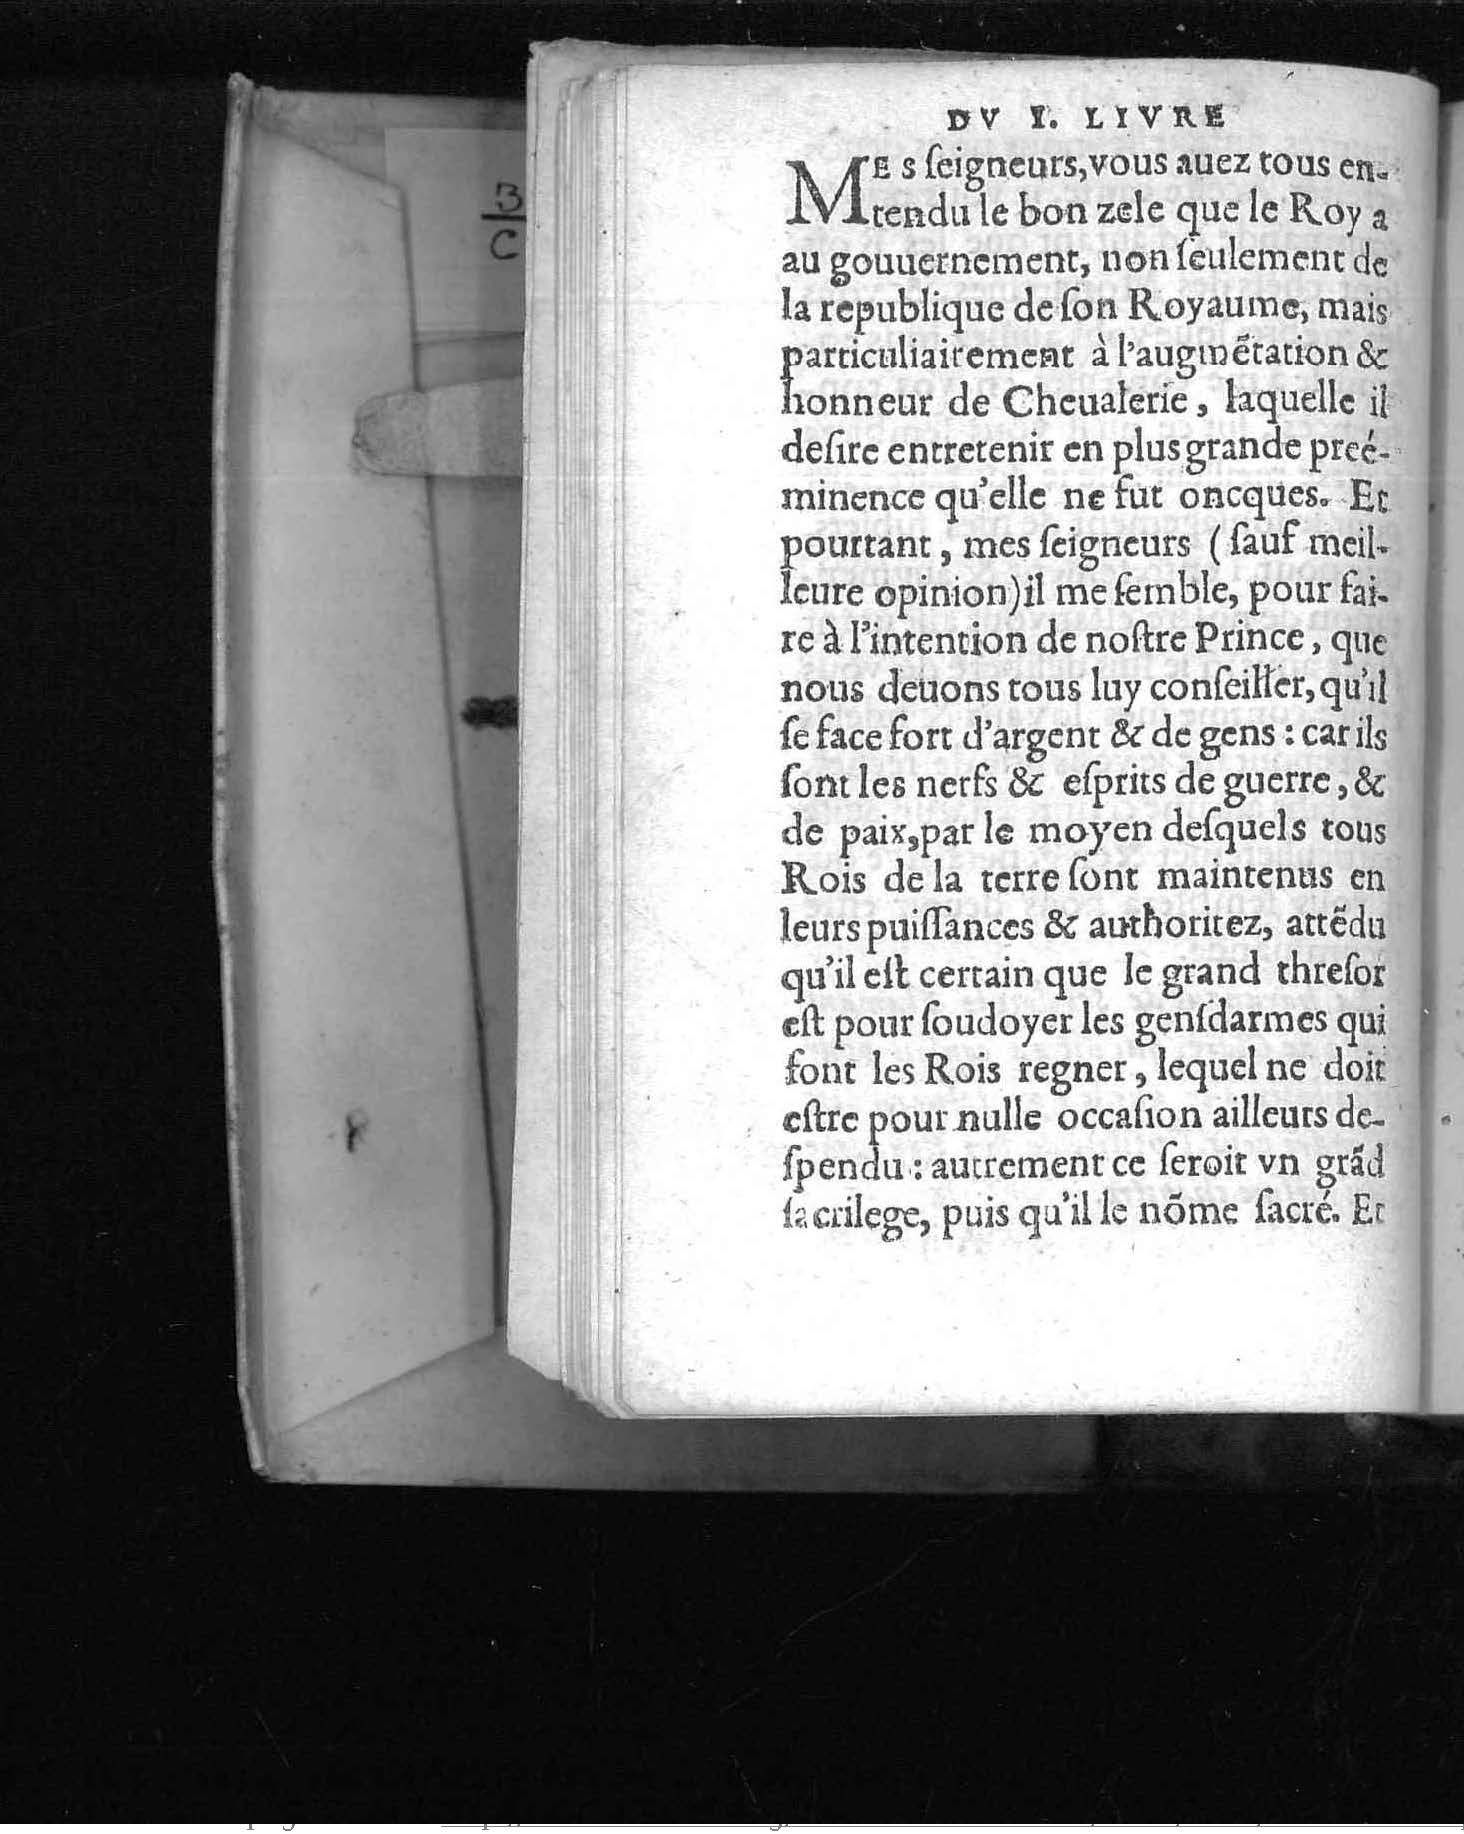 B
C
DV I. LIVRE
MES ſeigneurs,vous auez tous en-
tendu le bon zele que le Roy a
au gouuernement, non ſeulement de
la republique de ſon Royaume, mais
particuliairement à l'augmẽtation &
honneur de Cheualerie, laquelle il
deſire entretenir en plus grande preé-
minence qu'elle ne fut oncques. Et
pourtant, mes ſeigneurs (ſauf meil-
leure opinion) il me ſemble, pour fai-
re à l'intention de noſtre Prince, que
nous deuons tous luy conſeiller, qu'il
ſe face fort d'argent & de gens : car ils
ſont les nerfs & eſprits de guerre, &
de paix, par le moyen deſquels tous
Rois de la terre ſont maintenus en
leurs puiſſances & authoritez, attẽdu
qu'il eſt certain que le grand threſor
eſt pour ſoudoyer les genſdarmes qui
font les Rois regner, lequel ne doit
eſtre pour nulle occaſion ailleurs de-
ſpendu : autrement ce ſeroit vn grãd
ſacrilege, puis qu'il le nõme ſacré. Et